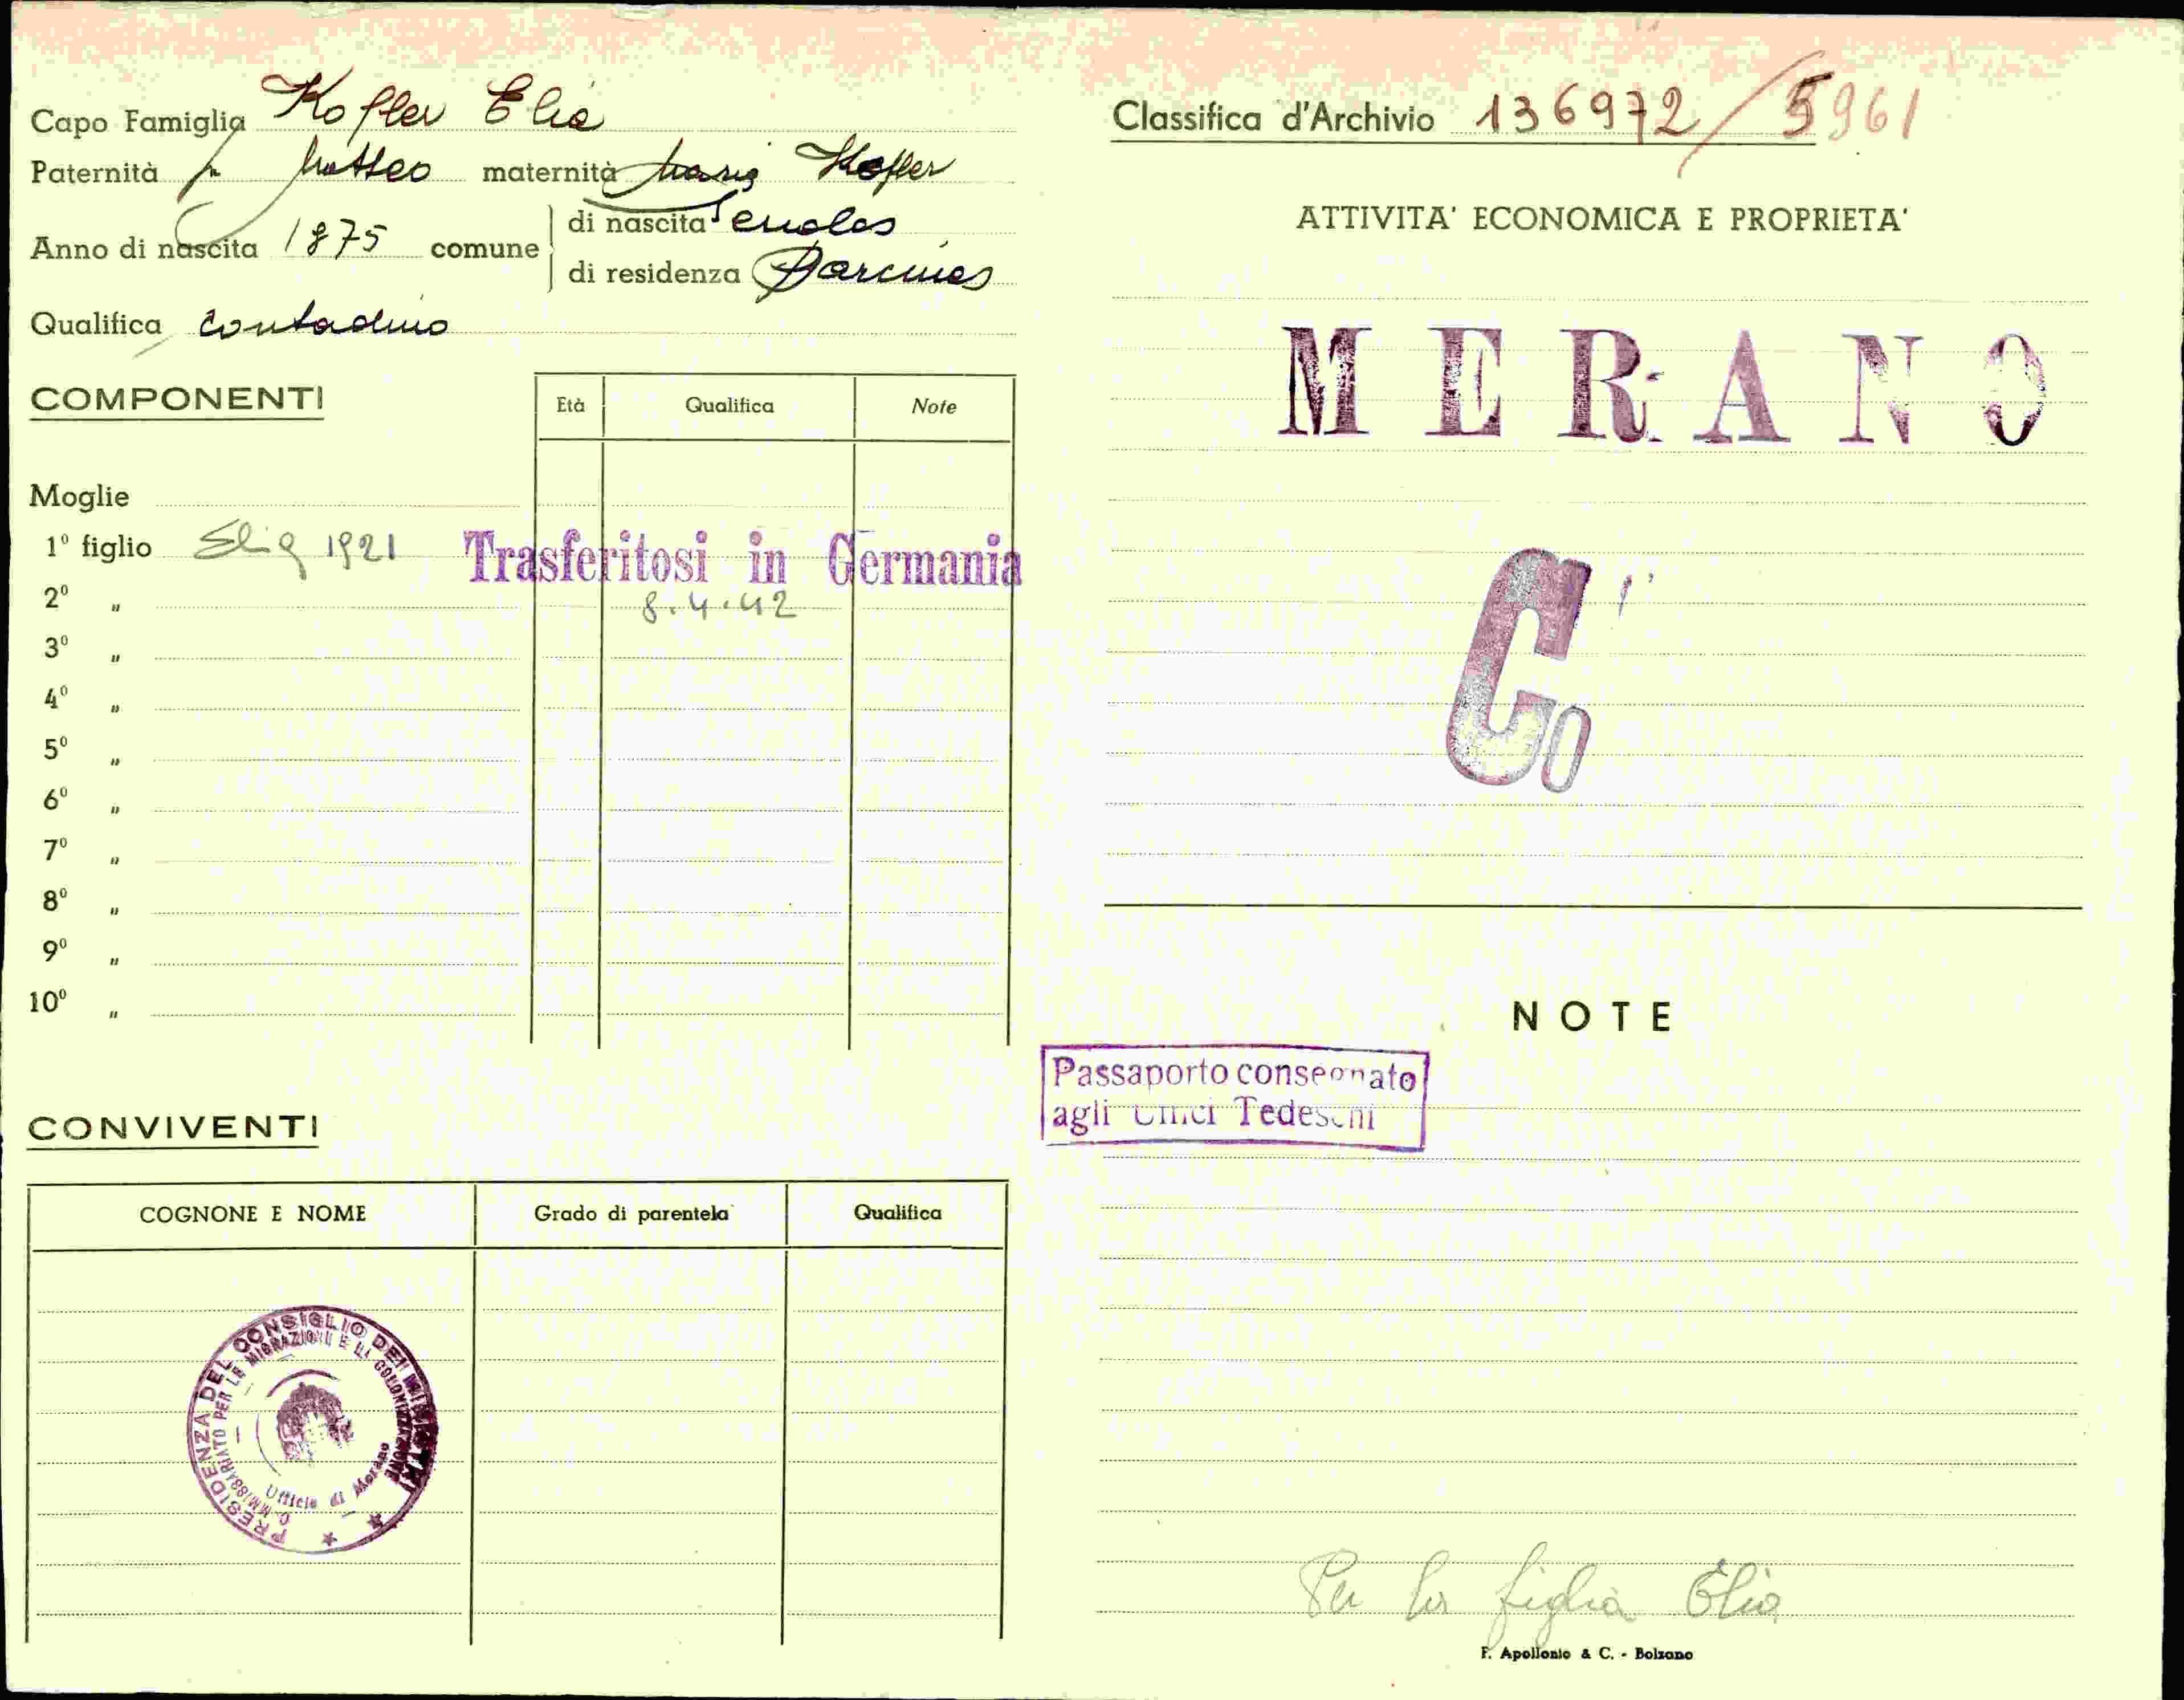 Capo Famiglia Kofler Elia
Paternità fu Matteo maternità Maria Kofler
Anno di nascita 1875 comune di nascita Senales
di residenza Parcines
Qualifica contadino
COMPONENTI
Età Qualifica Note
Moglie
1º figlio Elia 1921 Trasferitosi in Germania
2º " 8.4.42
3º "
4º "
5º "
6º "
7º "
8º "
9º "
10º "
CONVIVENTI
COGNONE E NOME Grado di parentela Qualifica
PRESIDENZA DEL CONSIGLIO DEI MINISTRI
COMMISSARIATO PER LE MIGRAZIONI E LA COLONIZZAZIONE
Ufficio di Merano
Classifica d'Archivio 136972/5961
ATTIVITA' ECONOMICA E PROPRIETA'
MERANO
Co
NOTE
Passaporto consegnato
agli Uffici Tedeschi
Per la figlia Elia
F. Apollonio & C. - Bolzano